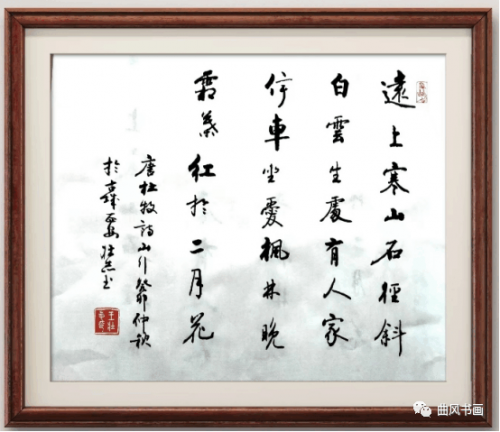 遠上寒山石徑斜
白雲生處有人家
停車坐愛楓林晚
霜葉紅於二月花
唐杜牧詩山行癸卯仲秋
於
曲风书画